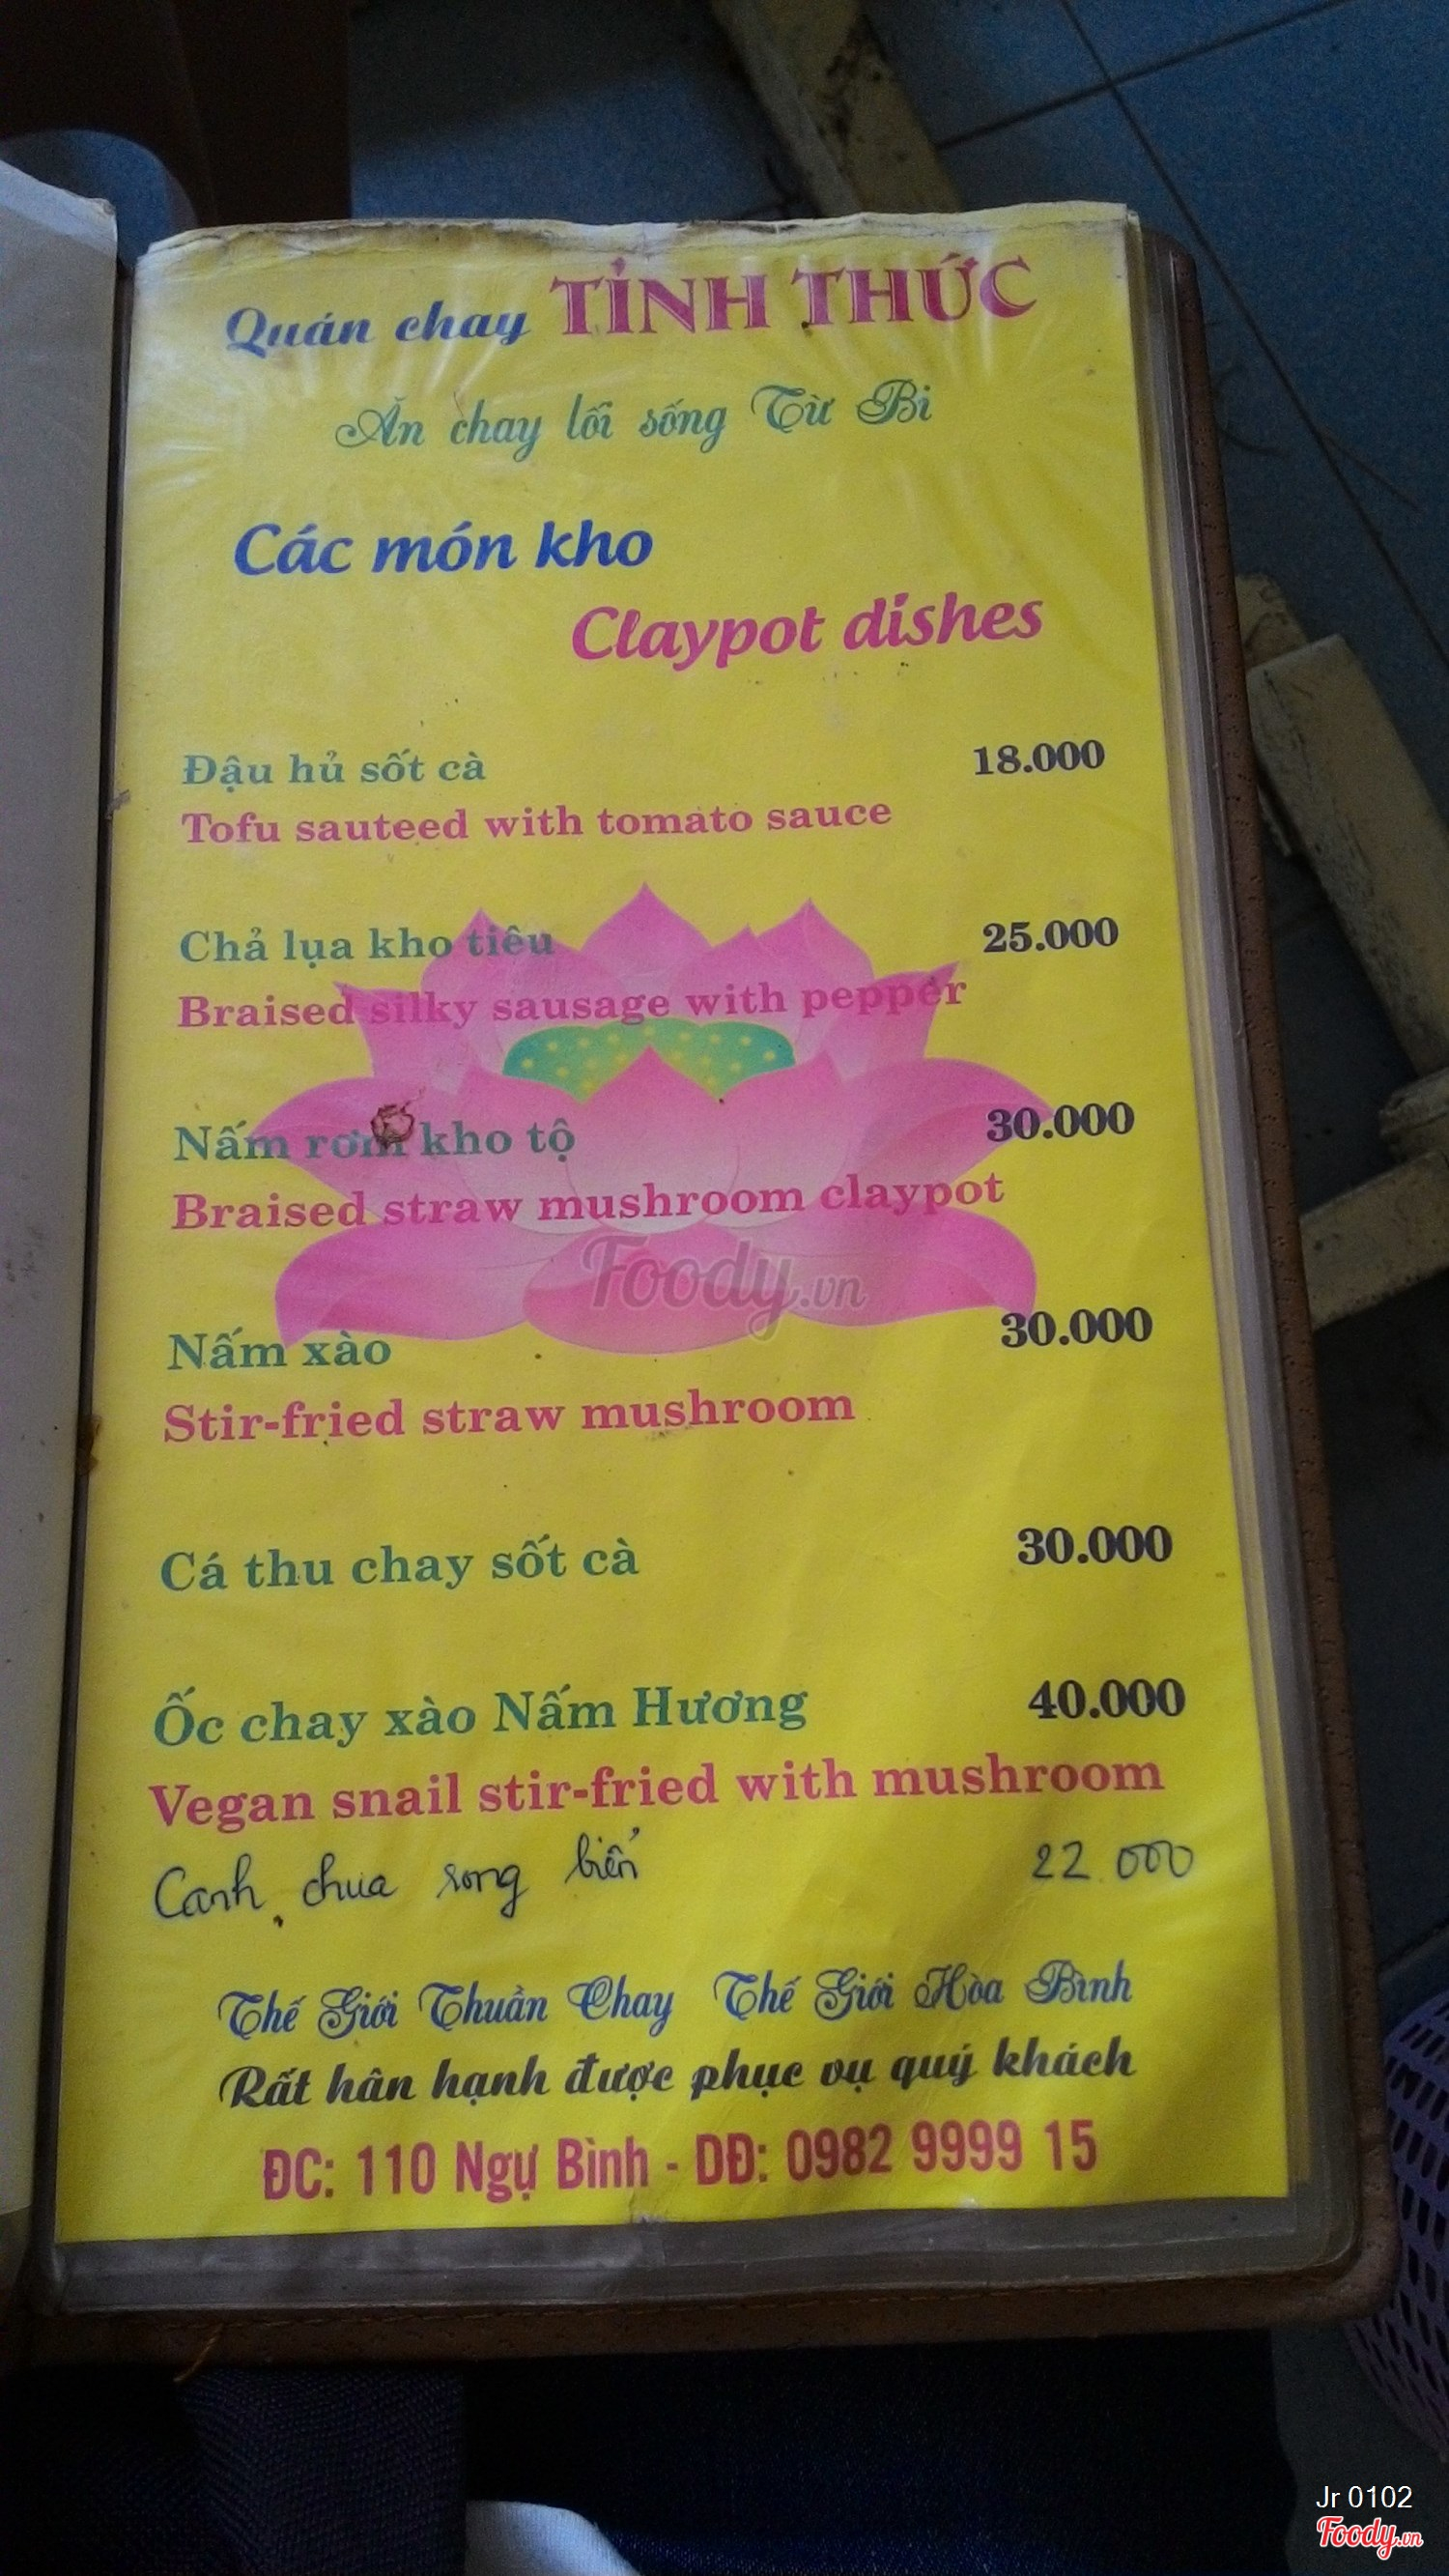 Quán chay TỈNH THỨC
Ăn chay lối sống Từ Bi
Các món kho
Claypot dishes
Đậu hủ sốt cà 18.000
Tofu sauteed with tomato sauce
Chả lụa kho tiêu 25.000
Braised silky sausage with pepper
Nấm rơm kho tộ 30.000
Braised straw mushroom claypot
Foody.vn
Nấm xào 30.000
Stir-fried straw mushroom
Cá thu chay sốt cà 30.000
Ốc chay xào Nấm Hương 40.000
Vegan snail stir-fried with mushroom
Canh chua rong biển 22.000
Thế Giới Thuần Chay Thế Giới Hòa Bình
Rất hân hạnh được phục vụ quý khách
ĐC: 110 Ngự Bình - DĐ: 0982 9999 15
Jr 0102
Foody.vn